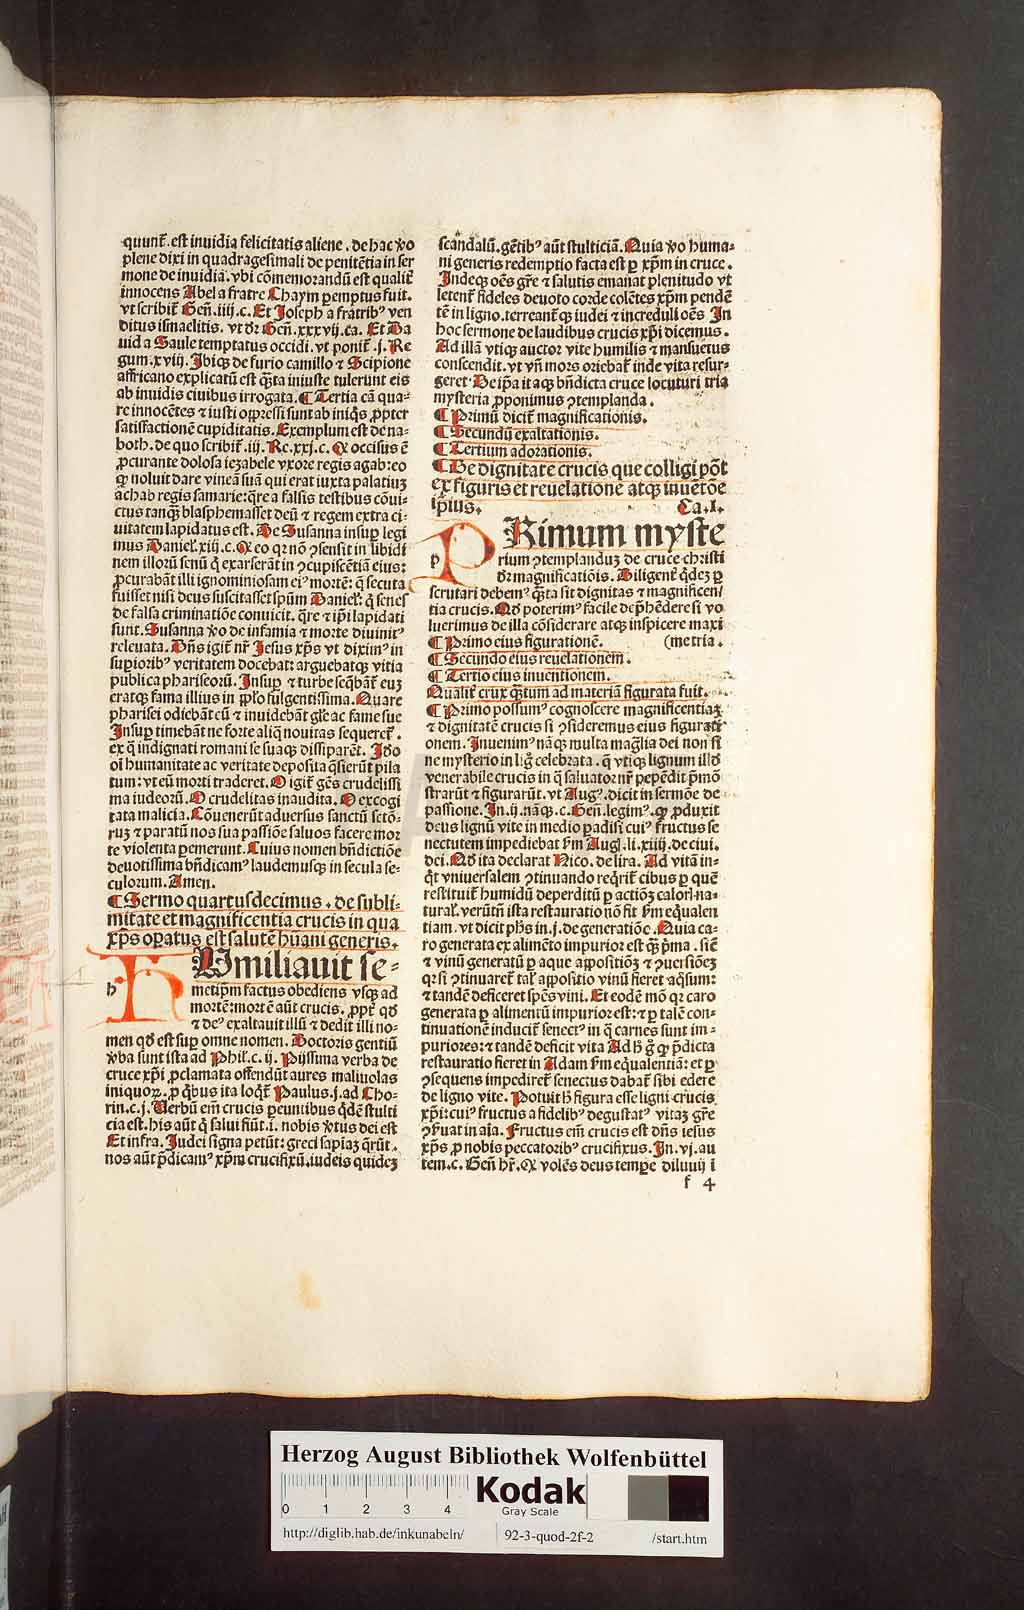 quunt̃. est inuidia felicitatis aliene . de hac ꝟo
plene dixi in quadragesimali de penitẽtia in ser
mone de inuidia. vbi cõmemorandũ est qualit̃
innocens Abel a fratre Chaym ꝑemptus fuit.
vt scribit̃ Geñ. iiij. c. Et Joseph a fratribꝰ ven
ditus ismaelitis. vt dr̃ Geñ. xxxvij. ca. Et Da
uid a Saule temptatus occidi. vt ponit̃ .j. Re
gum. xviij. Ibiqꝫ de furio camillo ⁊ Scipione
affricano explicatũ est q̃ta iniuste tulerunt eis
ab inuidis ciuibus irrogata. ¶ Tertia cã qua-
re innocẽtes ⁊ iusti opp̃ssi sunt ab iniq̃s ꝓpter
satisfactionẽ cupiditatis. Exemplum est de na-
both. de quo scribit̃ .iij. Re. xxj. c. Q̃ occisus ẽ
ꝓcurante dolosa iezabele vxore regis agab: eo
ꝙ noluit dare vineã suã qui erat iuxta palatiuꝫ
achab regis samarie: q̃re a falsis testibus cõui-
ctus tanqꝫ blasphemasset deũ ⁊ regem extra ci-
uitatem lapidatus est. De Susanna insuꝑ legi
mus Daniel̃. xiij. c. Q̃ eo qꝛ nõ ꝯsensit in libidi
nem illorũ senũ q̃ exarserãt in ꝯcupiscẽtiã eius:
ꝓcurabãt illi ignominiosam eiꝰ mortẽ: q̃ secuta
fuisset nisi deus suscitasset spũm Daniel̃: q̃ senes
de falsa criminatiõe conuicit. q̃re ⁊ ip̃i lapidati
sunt. Susanna ꝟo de infamia ⁊ morte diuinitꝰ
releuata. Dñs igit̃ nr̃ Jesus xp̃s vt diximꝰ in
suꝑioribꝰ veritatem docebat: arguebatqꝫ vitia
publica phariseorũ. Insuꝑ ⁊ turbe seq̃bãt̃ euꝫ
eratqꝫ fama illius in pp̃lo fulgentissima. Quare
pharisei odiebãt eũ ⁊ inuidebãt gl̃e ac fame sue
Insuꝑ timebãt ne forte aliq̃ nouitas sequeret̃.
ex q̃ indignati romani se suaqꝫ dissiparẽt. Iõo
oĩ humanitate ac veritate deposita q̃sierũt pila
tum: vt eũ morti traderet. O igit̃ gẽs crudelissi
ma iudeorũ. O crudelitas inaudita. O excogi
tata malicia. Cõuenerũt aduersus sanctũ sctõ-
ruꝫ ⁊ paratũ nos sua passiõe saluos facere mor
te violenta ꝑemerunt. Cuius nomen bñdictiõe
deuotissima bñdicamꝰ laudemusqꝫ in secula se-
culorum. Amen.
¶ Sermo quartusdecimus . de subli-
mitate et magnificentia crucis in qua
xp̃s oꝑatus est salutẽ hũani generis.
HUmiliauit se-
h metip̃m factus obediens vsqꝫ ad
mortẽ: mortẽ aũt crucis. ꝓpt̃ qđ
⁊ deꝰ exaltauit illũ ⁊ dedit illi no-
men qđ est suꝑ omne nomen. Doctoris gentiũ
ꝟba sunt ista ad Phil̃. c. ij. Pijssima verba de
cruce xp̃i ꝓclamata offendũt aures maliuolas
iniquoꝝ. ꝓ q̃bus ita loq̃t̃ Paulus .j. ad Cho-
rin. c. j. Verbũ em̃ crucis ꝑeuntibus q̃dẽ stulti
cia est. his aũt q̃ salui fiũt .i. nobis ꝟtus dei est
Et infra. Judei signa petũt: greci sapiaꝫ q̃rũt.
nos aũt p̃dicamꝰ xp̃m crucifixũ. iudeis quideꝫ
scandalũ. gẽtibꝰ aũt stulticiã. Quia ꝟo huma-
ni generis redemptio facta est ꝑ xp̃m in cruce.
Indeqꝫ oẽs gr̃e ⁊ salutis emanat plenitudo vt
letent̃ fideles deuoto corde colẽtes xp̃m pendẽ
tẽ in ligno. terreant̃qꝫ iudei ⁊ increduli oẽs In
hoc sermone de laudibus crucis xp̃i dicemus.
Ad illã vtiqꝫ auctor vite humilis ⁊ mansuetus
conscendit. vt vñ mors oriebat̃ inde vita resur-
geret. De ip̃a itaqꝫ bñdicta cruce locuturi tria
mysteria ꝓponimus ꝯtemplanda.
¶ Primũ dicit̃ magnificationis.
¶ Secundũ exaltationis.
¶ Tertium adorationis.
¶ De dignitate crucis que colligi põt
ex figuris et reuelatione atqꝫ inuẽtõe
ip̃ius. Ca. I.
PRimum myste
p rium ꝯtemplanduꝫ de cruce christi
dr̃ magnificatiõis. Diligent̃ q̃dez ꝑ
scrutari debemꝰ q̃ta sit dignitas ⁊ magnificen/
tia crucis. Qđ poterimꝰ facile dep̃hẽdere si vo
luerimus de illa cõsiderare atqꝫ inspicere maxi
¶ Primo eius figurationẽ. (me tria.
¶ Secundo eius reuelationem.
¶ Tertio eius inuentionem.
Qualit̃ crux q̃tum ad materiã figurata fuit.
¶ Primo possumꝰ cognoscere magnificentiaꝫ
⁊ dignitatẽ crucis si ꝯsideremus eius figurati
onem. Inuenimꝰ nãqꝫ multa mag̃lia dei non si
ne mysterio in lig̃ celebrata. q̃ vtiqꝫ lignum illđ
venerabile crucis in q̃ saluator nr̃ pepẽdit p̃mõ
strarũt ⁊ figurarũt. vt Augꝰ. dicit in sermõe de
passione. In .ij. nãqꝫ. c. Geñ. legimꝰ. ꝙ ꝓduxit
deus lignũ vite in medio ꝑadisi cuiꝰ fructus se
nectutem impediebat fm̃ Aug̃. li. xiiij. de ciui.
dei. Qđ ita declarat Nico. de lira. Ad vitã in-
q̃t vniuersalem ꝯtinuando req̃rit̃ cibus ꝑ quẽ
restituit̃ humidũ deperditũ ꝑ actiõꝫ calor̃ na-
tural̃. verũtñ ista restauratio nõ fit fm̃ eq̃ualen
tiam. vt dicit ph̃s in .j. de generatiõe. Quia ca-
ro generata ex alimẽto impurior est q̃ꝫ p̃ma. sic̃
⁊ vinũ generatũ ꝑ aque appositiõꝫ ⁊ ꝯuersiõeꝫ
qꝛ si ꝯtinuaret̃ tal̃ appositio vinũ fieret aq̃sum:
⁊ tandẽ deficeret sp̃es vini. Et eodẽ mõ qꝛ caro
generata ꝑ alimentũ impurior est: ⁊ ꝑ talẽ con-
tinuationẽ inducit̃ senectꝰ in q̃ carnes sunt im-
puriores: ⁊ tandẽ deficit vita Ad h̃ g̃ ꝙ p̃dicta
restauratio fieret in Adam fm̃ eq̃ualentiã: et ꝑ
ꝯsequens impediret̃ senectus dabat̃ sibi edere
de ligno vite. Potuit h̃ figura esse ligni crucis
xp̃i: cuiꝰ fructus a fidelibꝰ degustatꝰ vitaꝫ gr̃e
ꝯẜuat in aĩa. Fructus em̃ crucis est dñs iesus
xp̃s ꝓ nobis peccatoribꝰ crucifixus. In .vj. au
tem. c. Geñ hr̃. Q̃ volẽs deus tempe diluuij i
f 4
Herzog August Bibliothek Wolfenbüttel
0 1 2 3 4
Kodak
Gray Scale
http://diglib.hab.de/inkunabeln/ 92-3-quod-2f-2 /start.htm